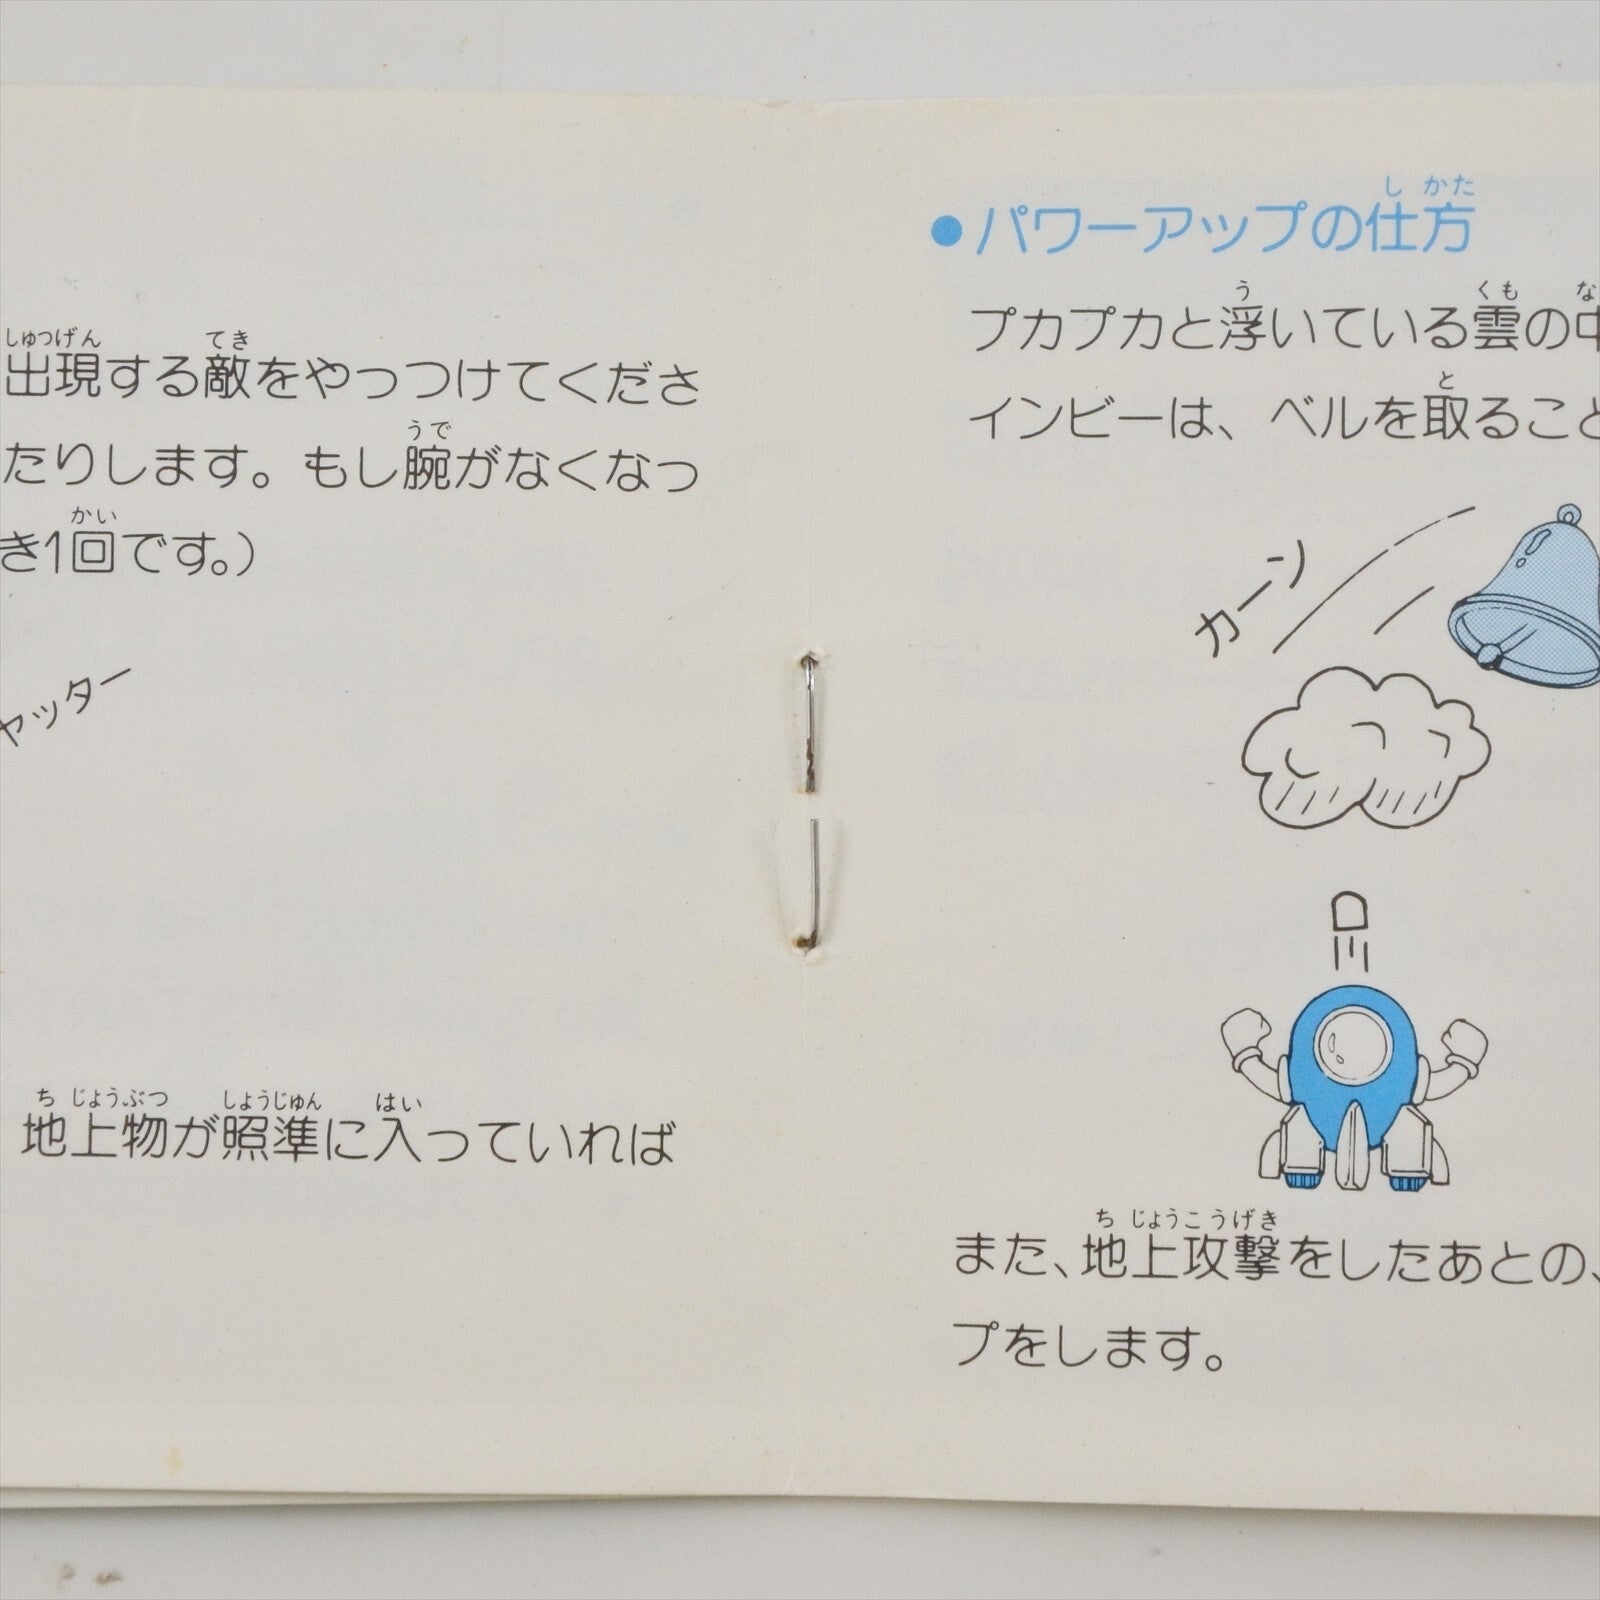 出現する敵をやっつけてくださ
たりします。もし腕がなくなっ
き1回です。)
ャッター
地上物が照準に入っていれば
●パワーアップの仕方
プカプカと浮いている雲の中
インビーは、ベルを取ること
カーン
また、地上攻撃をしたあとの、
プをします。